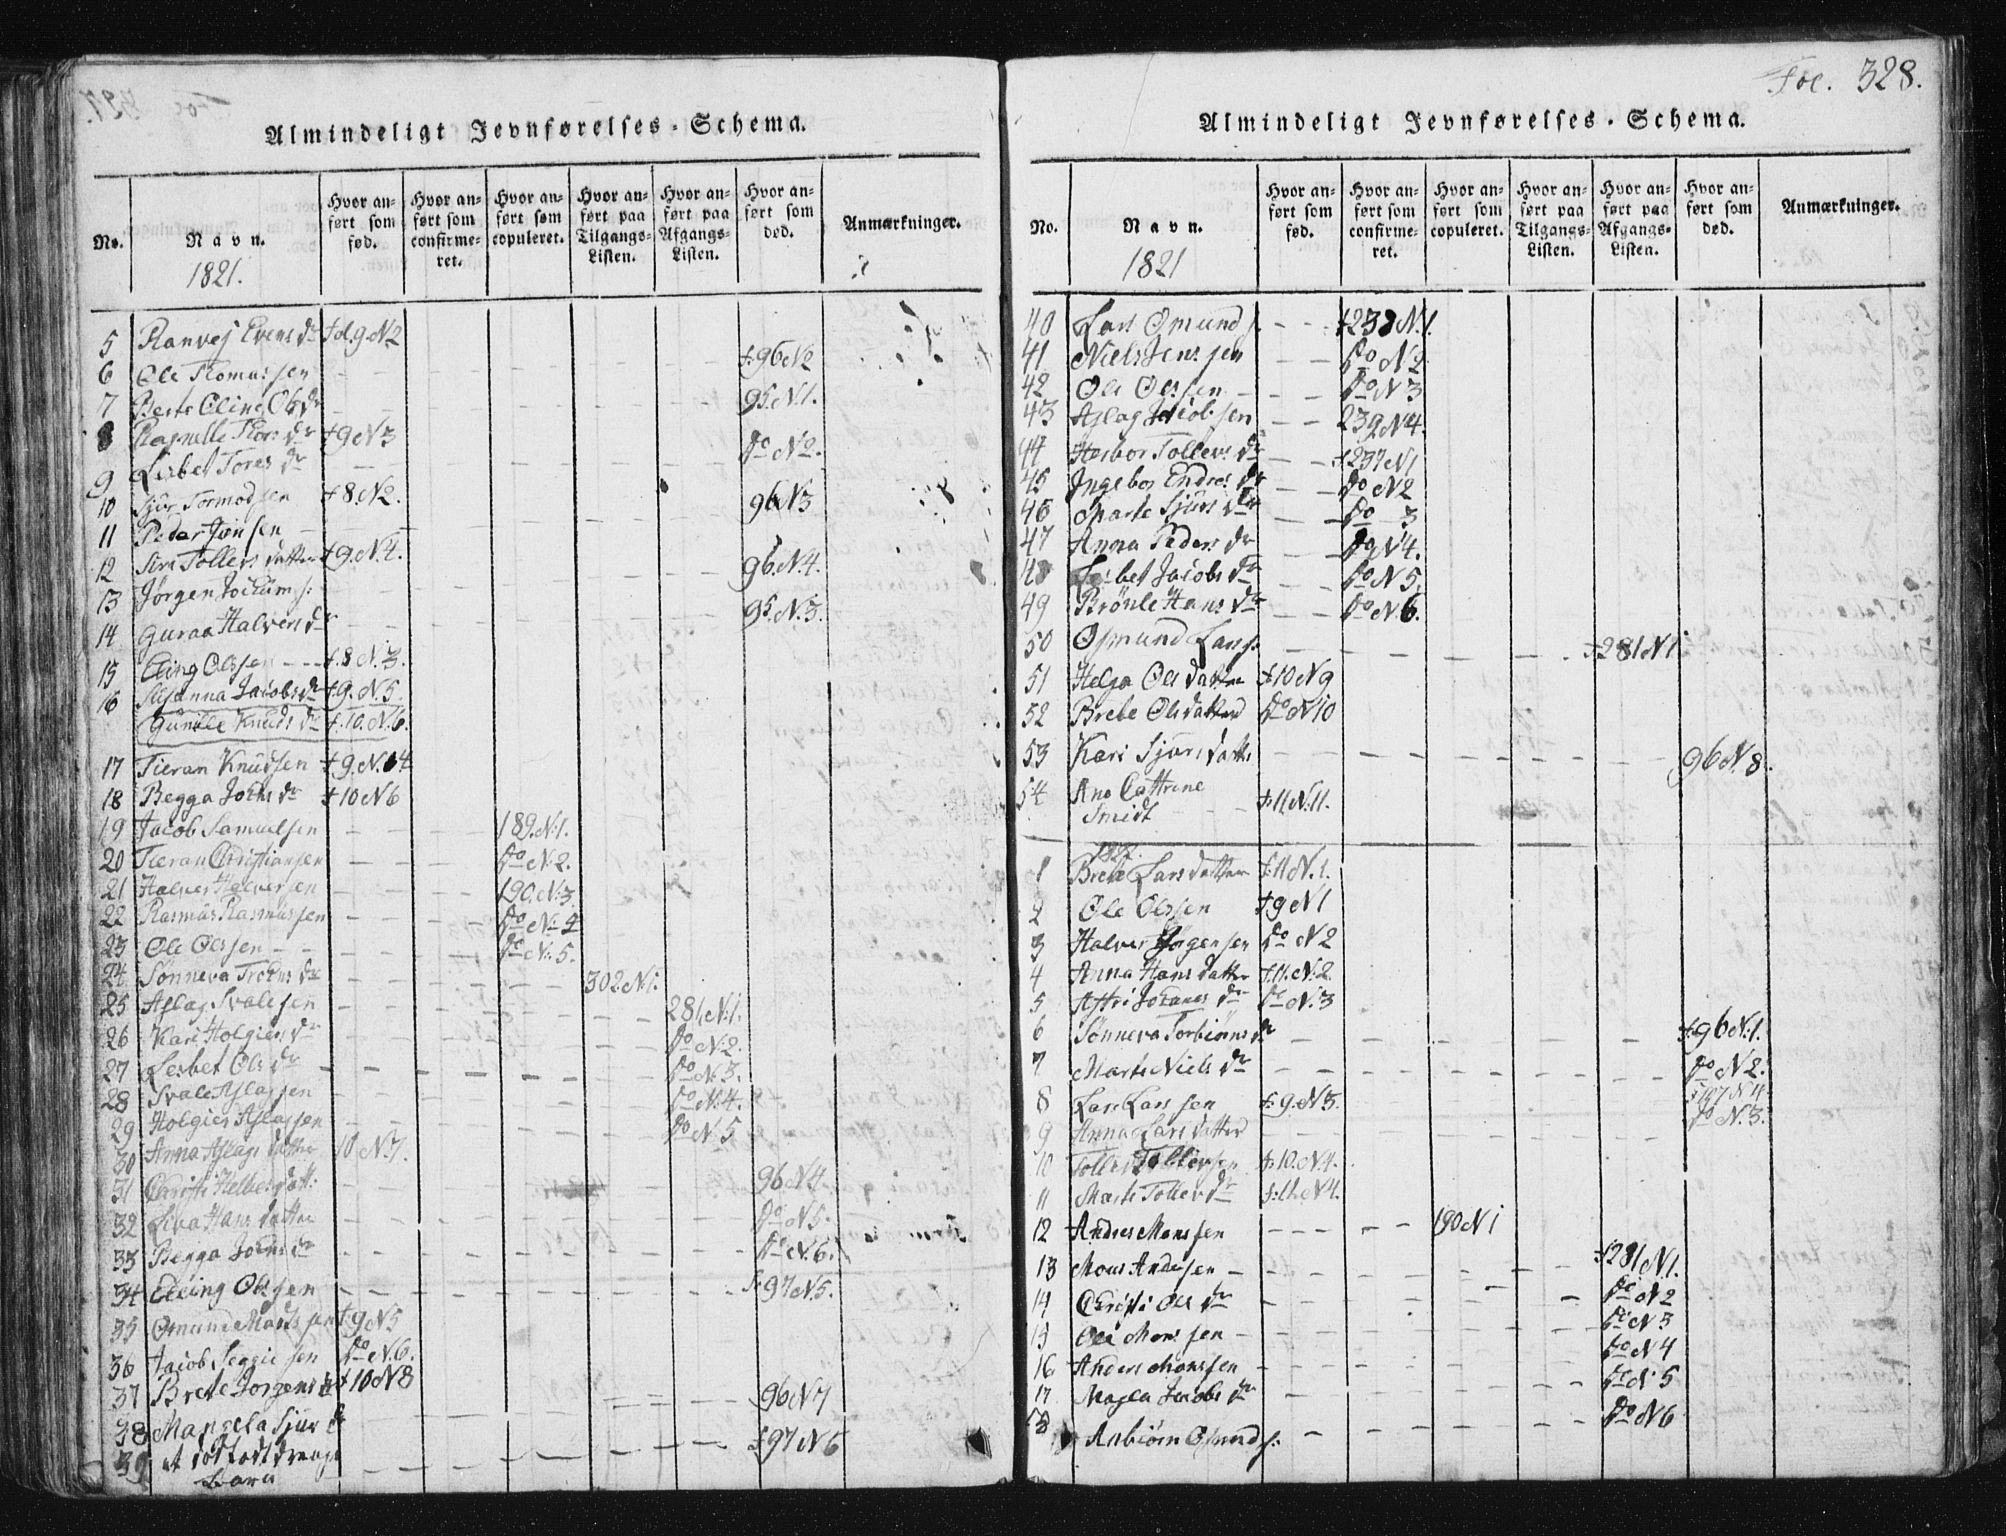 Almindeligt Jevnførelses-Schema.
No. Navn. Hvor anført som fød. Hvor anført som confirmeret. Hvor anført som copuleret. Hvor anført paa Tilgangs-Listen. Hvor anført paa Afgangs-Listen. Hvor anført som død. Anmærkninger.
1821.
5 Ranvej Evens dr fol. 9. N2
6 Ole Tomassen f. 96 N2
7 Berte Oline Ols dr 95. N.1.
8 Ragnelle Tors dr f 9 N3
9 Lisbet Tores dr do N2.
10 Sjur Tormodsen f 8. N2.
11 Peder Jonsen 96 N3
12 Siri Tollers datter f 9. N.4.
13 Jørgen Jockum s: 96. N.4.
14 Guraa Halvers dr 95. N.3.
15 Elling Olssen f. 8 N.3.
16 Susanna Jacobs dr f 9. N.5.
Gunille Knuds dr f. 10. N.6.
17 Tieran Knudsen f 9. N. 4
18 Begga Jochs dr f 10 N6
19 Jacob Samuelsen 189. N.1.
20 Tieran Christiansen do N.2.
21 Halver Halversen 190. N.3.
22 Rasmus Rasmussen do N. 4
23 Ole Olssen do N. 5.
24 Sønneva Trohns dr 302. N.1.
25 Aslag Svalesen 281. N.1.
26 Kari Holgiers dr do N.2.
27 Lisbet Ols dr do N. 3.
28 Svale Aslagsen do N.4.
29 Holgier Aslagsen do N. 5
30 Anna Aslags datter 10 N.7.
31 Christi Helbers datt: 96 N4
32 Siva Hans datter do N 5.
33 Begga Jochs dr do N. 6.
34 Elling Olssen f. 97 N.5.
35 Osmund Monssen f 9 N5
36 Jacob Seggiesen do N.6.
37 Brete Jorgens dr f 10 N8
38 Mangela Sjur dr 96 N7
39 et dødfødt drenge Barn f 97 N 6
Fol. 328.
Almindeligt Jevnførelses-Schema.
No. Navn. Hvor anført som fød. Hvor anført som confirmeret. Hvor anført som copuleret. Hvor anført paa Tilgangs-Listen. Hvor anført paa Afgangs-Listen. Hvor anført som død. Anmærkninger.
1821
40 Lars Osmund s. f 238 N.1.
41 Niels Jenssen do N2
42 Ole Olssen do N 3
43 Aslag Jacobsen 239 N4.
44 Herbor Tollevs dr f 237 N1
45 Ingebor Endres dr do N2
46 Marte Sjurs dr do 3
47 Anna Peders dr do N 4.
48 Lisbet Jacobs dr do N 5.
49 Brønle Hans dr do N. 6.
50 Osmund Lars s. f 281 N1
51 Helga Ols datter f 10 N9
52 Brete Ols datter do N 10
53 Kari Sjurs datter 96 N. 8.
54 Ane Cattrine
Smidt f. 11. N. 11.
1822.
1 Brete Lars datter f. 11 N. 1.
2 Ole Olssen f 9 N1
3 Halver Jørgensen do N2
4 Anna Hans datter f. 11. N.2.
5 Astri Johanes dr do N. 3
6 Sønneva Torbiørns dr f. 96 N.1.
7 Marte Niels dr do N 2.
8 Lars Larssen f. 9. N 3. f 97 N 4.
9 Anna Lars datter do N. 3.
10 Toller Tollersen f. 10. N.4.
11 Marte Toller dr f. 11. N4.
12 Andres Monssen 190 N 1
13 Mons Andersen f 281 N.1.
14 Christi Ols dr do N2
15 Ole Monssen do N 3
16 Anders Monssen do N 4
17 Magla Jacobs dr do N 5
18 Anbiørn Osmund s: do N 6